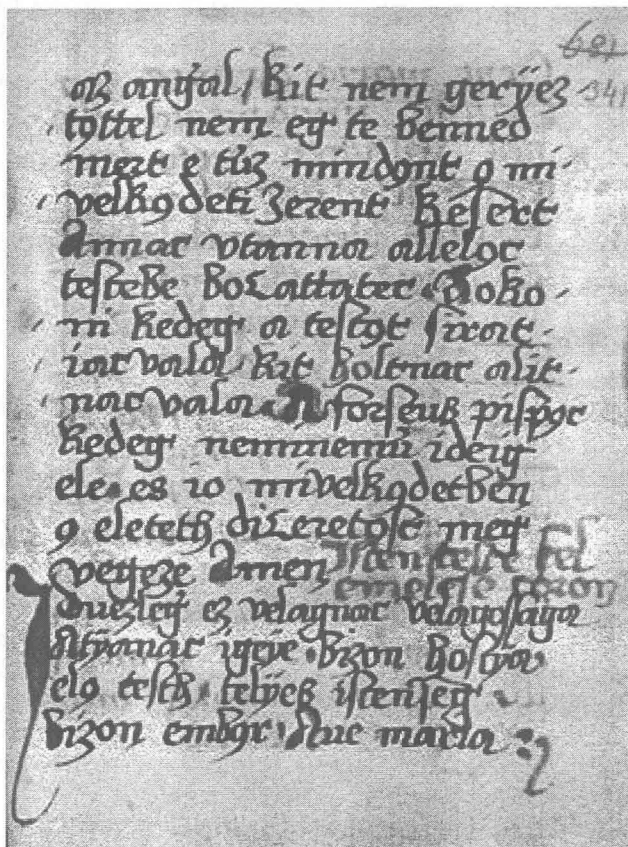 681
341
az angal / kit nem gerÿez
tȯttel nem eg te benned
mert e tuz mindȯnt ȯ mi
velkȯdeti zerent kesert
Annac vtanna alleloc
testebe bocattatec Hoko
ni kedeg a testȯt sirat
iac vala kit holtnac alit
nac vala A forseus pispȯc
kedeg neminemů ideig
ele es io mivelkȯdetben
ȯ eleteth diceretȯst meg
vegeze Amen Isten teste fel
emelese coron
Iduezleg ez velagnac velagossaga
Atÿanac igeÿe bizon hostÿa
elȯ testh telÿes istenseg
bizon embȯr Aue maria